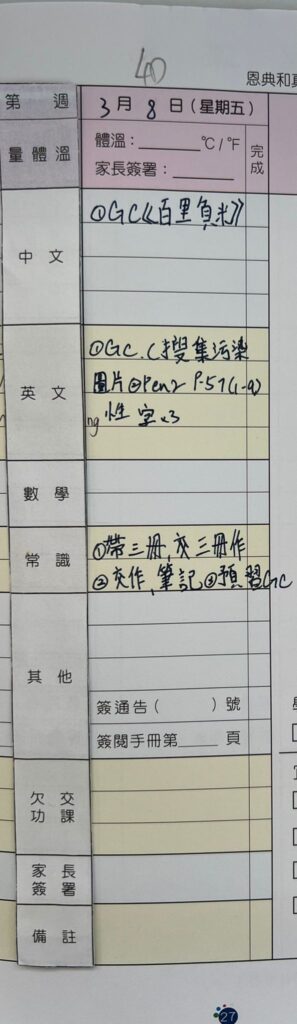 40
恩典和真
第 週
3月8日(星期五)
量體溫
體溫:______℃/°F
家長簽署:______
完成
中文
①GC《百里負米》
英文
①GC.(搜集污染
圖片②Pen2 P.57(1-9)
ng 性 室x3
數學
常識
①帶三冊,交三冊作
②交作,筆記③預習GC
其他
簽通告( )號
簽閱手冊第____頁
欠交
功課
家長
簽署
備註
27